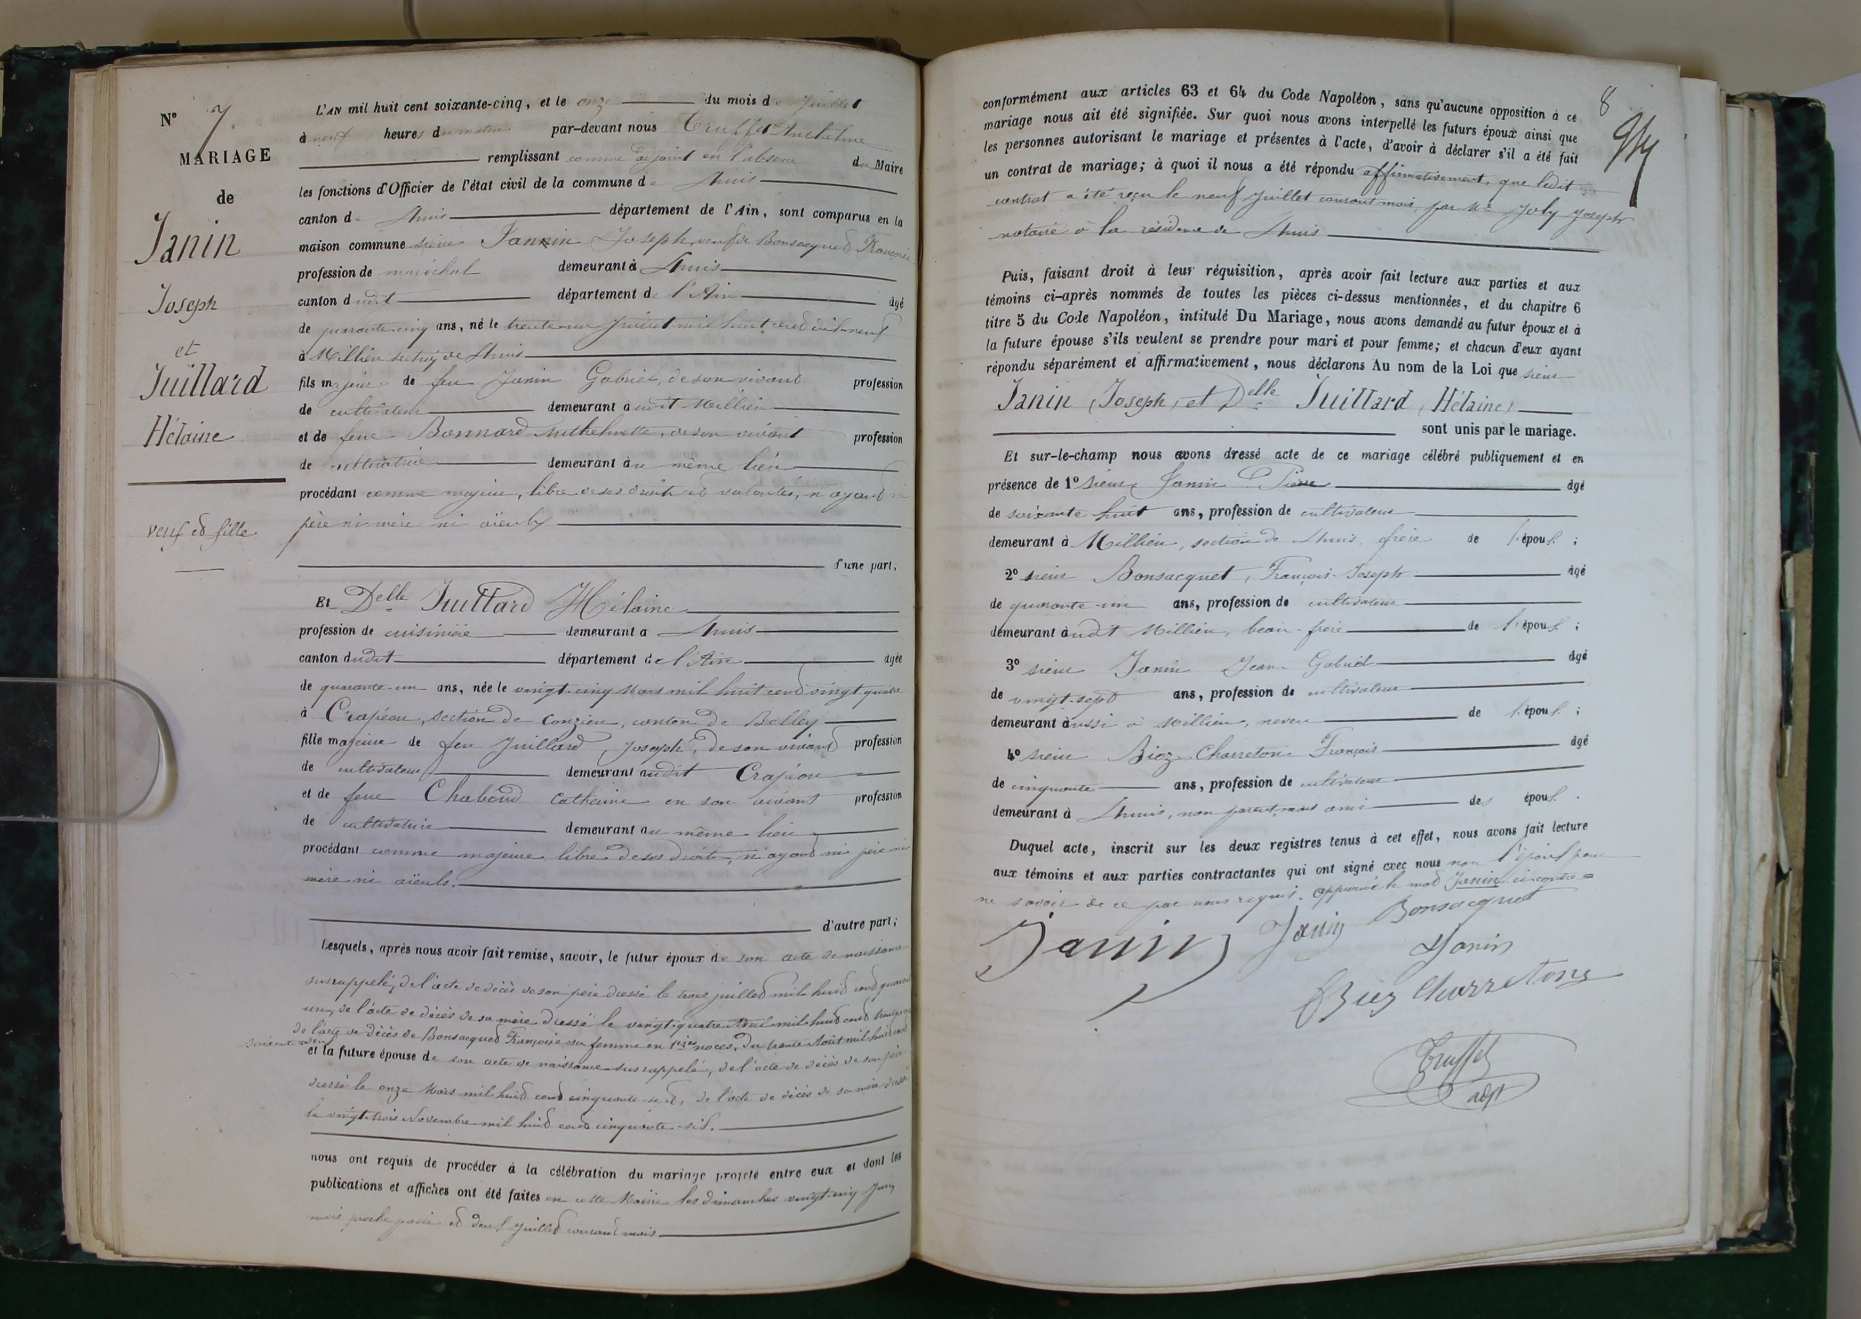 N° 7
MARIAGE
de
Janin
Joseph
et
Juillard
Hélaine
veuf et fille
L'AN mil huit cent soixante-cinq, et le onze du mois de Juillet
à neuf heures du matin par-devant nous Truffet Anthelme
remplissant comme adjoint en l'absence du Maire
les fonctions d'Officier de l'état civil de la commune de Lhuis
canton de Lhuis département de l'Ain, sont comparus en la
maison commune sieur Jannin Joseph, veuf de Bonsacquet Françoise
profession de maréchal demeurant à Lhuis
canton dudit département de l'Ain âgé
de quarante-cinq ans, né le trente-un Juillet mil huit cent dix-neuf
à Millieu section de Lhuis
fils majeur de feu Janin Gabriel, de son vivant profession
de cultivateur demeurant audit Millieu
et de feue Bonnard Anthelmette, de son vivant profession
de cultivatrice demeurant au même lieu
procédant comme majeur, libre de ses droits et volontés, n'ayant ni
père ni mère ni aïeuls
d'une part,
Et Delle Juillard Hélaine
profession de cuisinière demeurant à Lhuis
canton dudit département de l'Ain âgée
de quarante-un ans, née le vingt-cinq Mars mil huit cent vingt quatre
à Crapéou, section de Conzieu, canton de Belley
fille majeure de feu Juillard, Joseph, de son vivant profession
de cultivateur demeurant audit Crapéou
et de feue Chaboud Catherine en son vivant profession
de cultivatrice demeurant au même lieu
procédant comme majeure, libre de ses droits, n'ayant ni père ni
mère ni aïeuls.
d'autre part;
Lesquels, après nous avoir fait remise, savoir, le futur époux de son acte de naissance
susrappelé, de l'acte de décès de son père dressé le trois juillet mil huit cent quarante
un, de l'acte de décès de sa mère dressé le vingt-quatre Avril mil huit cent
de l'acte de décès de Bonsacquet Françoise sa femme en 1ères noces, du trente Août mil huit cent
soixante
et la future épouse de son acte de naissance susrappelé, de l'acte de décès de son père
dressé le onze Mars mil huit cent cinquante-sept, de l'acte de décès de sa mère dressé
le vingt-trois Novembre mil huit cent cinquante-six.
nous ont requis de procéder à la célébration du mariage projeté entre eux et dont les
publications et affiches ont été faites en cette Mairie les dimanches vingt-cinq Juin
mois proche passé et deux Juillet courant mois
8
conformément aux articles 63 et 64 du Code Napoléon, sans qu'aucune opposition à ce
mariage nous ait été signifiée. Sur quoi nous avons interpellé les futurs époux ainsi que
les personnes autorisant le mariage et présentes à l'acte, d'avoir à déclarer s'il a été fait
un contrat de mariage; à quoi il nous a été répondu affirmativement, que ledit
contrat a été reçu le neuf Juillet courant mois par Me Joly Joseph
notaire à la résidence de Lhuis
Puis, faisant droit à leur réquisition, après avoir fait lecture aux parties et aux
témoins ci-après nommés de toutes les pièces ci-dessus mentionnées, et du chapitre 6
titre 5 du Code Napoléon, intitulé Du Mariage, nous avons demandé au futur époux et à
la future épouse s'ils veulent se prendre pour mari et pour femme; et chacun d'eux ayant
répondu séparément et affirmativement, nous déclarons Au nom de la Loi que sieur
Janin (Joseph) et Delle Juillard (Hélaine)
sont unis par le mariage.
Et sur-le-champ nous avons dressé acte de ce mariage célébré publiquement et en
présence de 1° sieur Janin Pierre âgé
de soixante huit ans, profession de cultivateur
demeurant à Millieu, section de Lhuis, frère de l'époux;
2° sieur Bonsacquet, François-Joseph âgé
de quarante-un ans, profession de cultivateur
demeurant audit Millieu, beau-frère de l'époux;
3° sieur Janin Jean Gabriel âgé
de vingt-sept ans, profession de cultivateur
demeurant aussi à Millieu, neveu de l'époux;
4° sieur Biez-Charreton François âgé
de cinquante ans, profession de cultivateur
demeurant à Lhuis, non parent, mais ami des époux.
Duquel acte, inscrit sur les deux registres tenus à cet effet, nous avons fait lecture
aux témoins et aux parties contractantes qui ont signé avec nous non l'épouse pour
ne savoir de ce par nous requis. Approuvé le mot Janin
Janin Janin Bonsacquet
Janin
Biez Charreton
Truffet
adjt